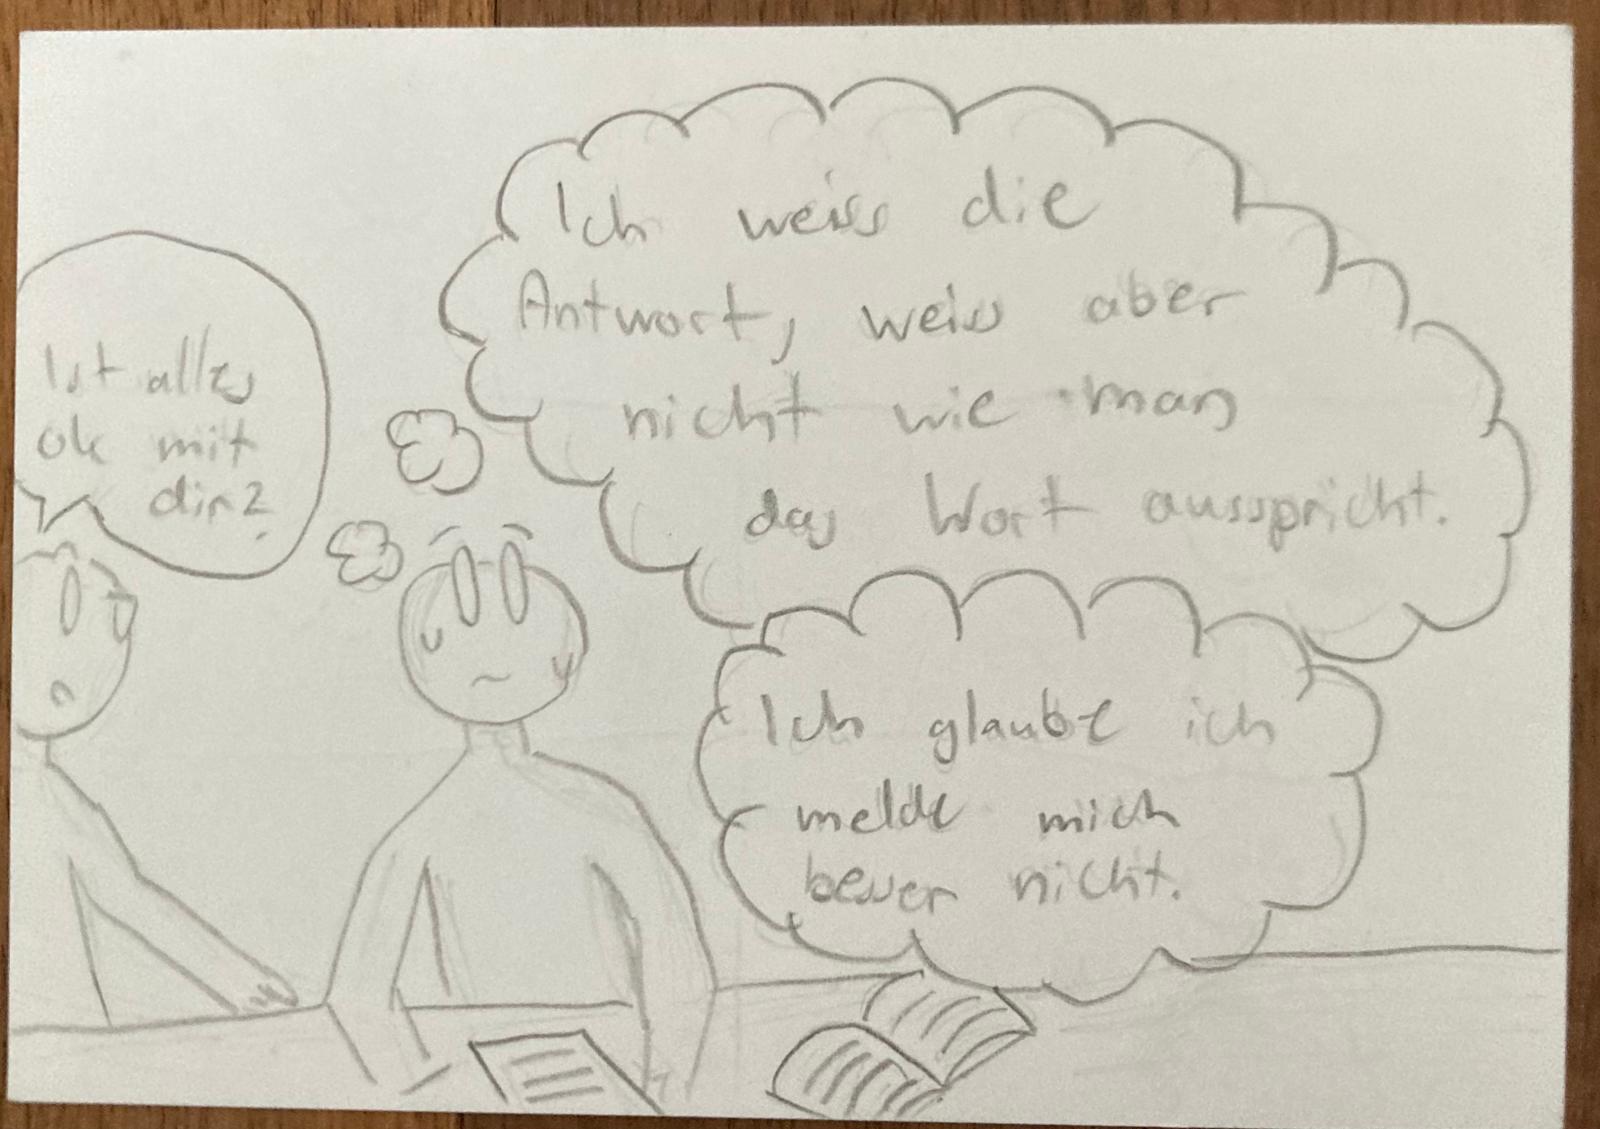 Ist alles
ok mit
dir?
Ich weiss die
Antwort, weiss aber
nicht wie man
das Wort ausspricht.
Ich glaube ich
melde mich
besser nicht.